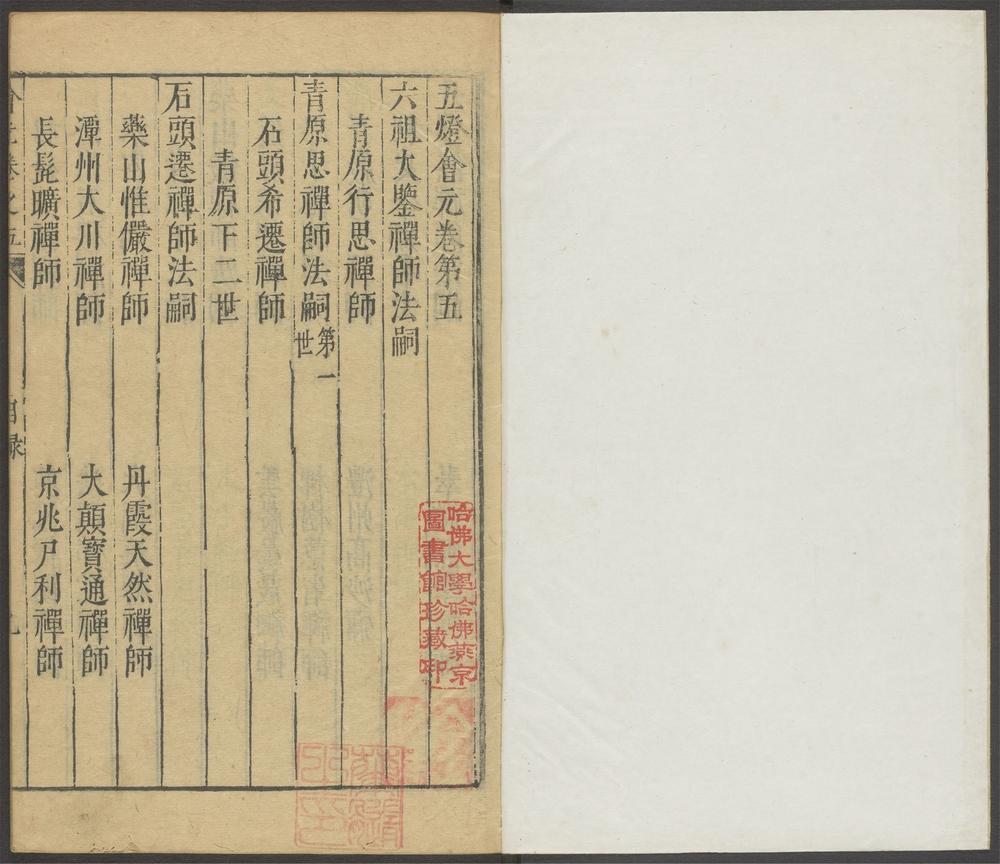 五燈會元卷第五
六祖大鑒禪師法嗣
青原行思禪師
青原思禪師法嗣第一世
石頭希遷禪師
青原下二世
石頭遷禪師法嗣
藥山惟儼禪師 丹霞天然禪師
潭州大川禪師 大顛寶通禪師
長髭曠禪師 京兆尸利禪師
會元卷之五 目録
哈佛大學哈佛燕京
圖書館珍藏印